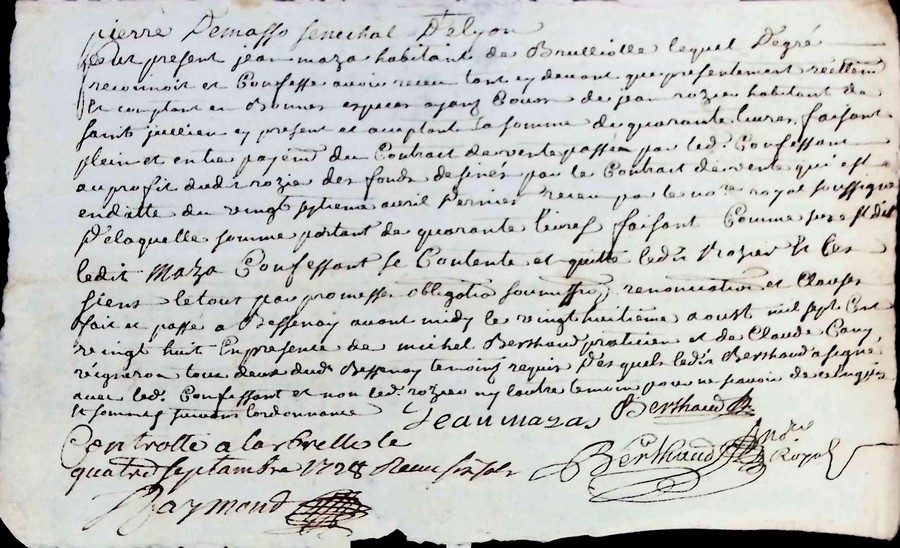 pierre Demasso senechal Delyon
fut present jean maza habitant de Brulliolle lequel Degré
reconnoit et Confesse avoir receu tant cy devant que presentement réellem
Et comptant en Bonnes especes ayant Cours de jean rozier habitant de
saint jullien cy present et acceptant la somme de quarante livres faisant
plein et entier payem du Contract de vente passée par led. Confessant
au profit dudi rozier des fonds desinés par le Contract de vente qui est
en datte du vingt septieme avril Dernier receu par le no.re royal soussigné
De laquelle somme portant de quarante livres faisant Comme sus est dit
ledit Maza Confessant se Contente et quitte led. rozier et les
siens le tout par promesse obligatio soumissio, renonciation et Clauses
fait et passe a Bessenay avant midy le vingt huitieme aoust mil sept Cent
vingt huit En presence de michel Berthaud praticien et de Claude
vigneron tous deux dud. Bessenay temoins requis Desquels led. Berthaud a signé
avec led. Confessant et non led. rozier ny lautre temoin pour ne scavoir de ce enquis
Et sommes suivant lordonnance Jean mazas Berthaud
Controllé a larbrelle le
quatre septembre 1728 Receu six sols Berthaud Royal
Raymond